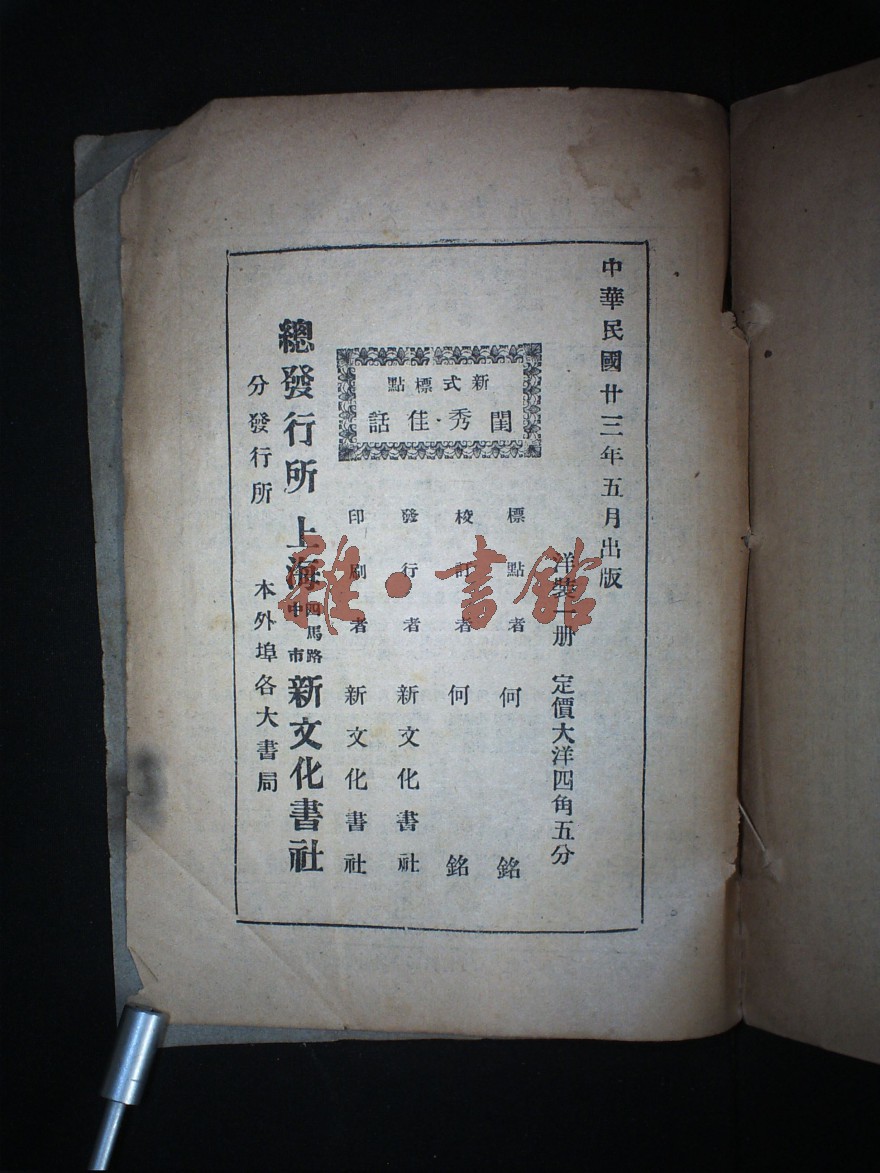 中華民國廿三年五月出版
洋裝一册　定價大洋四角五分
新式標點
閨秀·佳話
標點者　何銘
校訂者　何銘
發行者　新文化書社
印刷者　新文化書社
總發行所　上海四馬路中市新文化書社
分發行所　本外埠各大書局
雜·書館